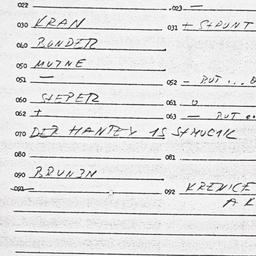 022 .023 —
030 KRAN 031 + STRUNT
040 BONDER
050 MUTNE
051 — 052 — BUT ... 
060 SIEPER 061 0
062 + 063 — BUT ..
070 DER HANTEY IS STMUCIK
080 081
090 BRUNIN
091 — 092 KRENICE
AK